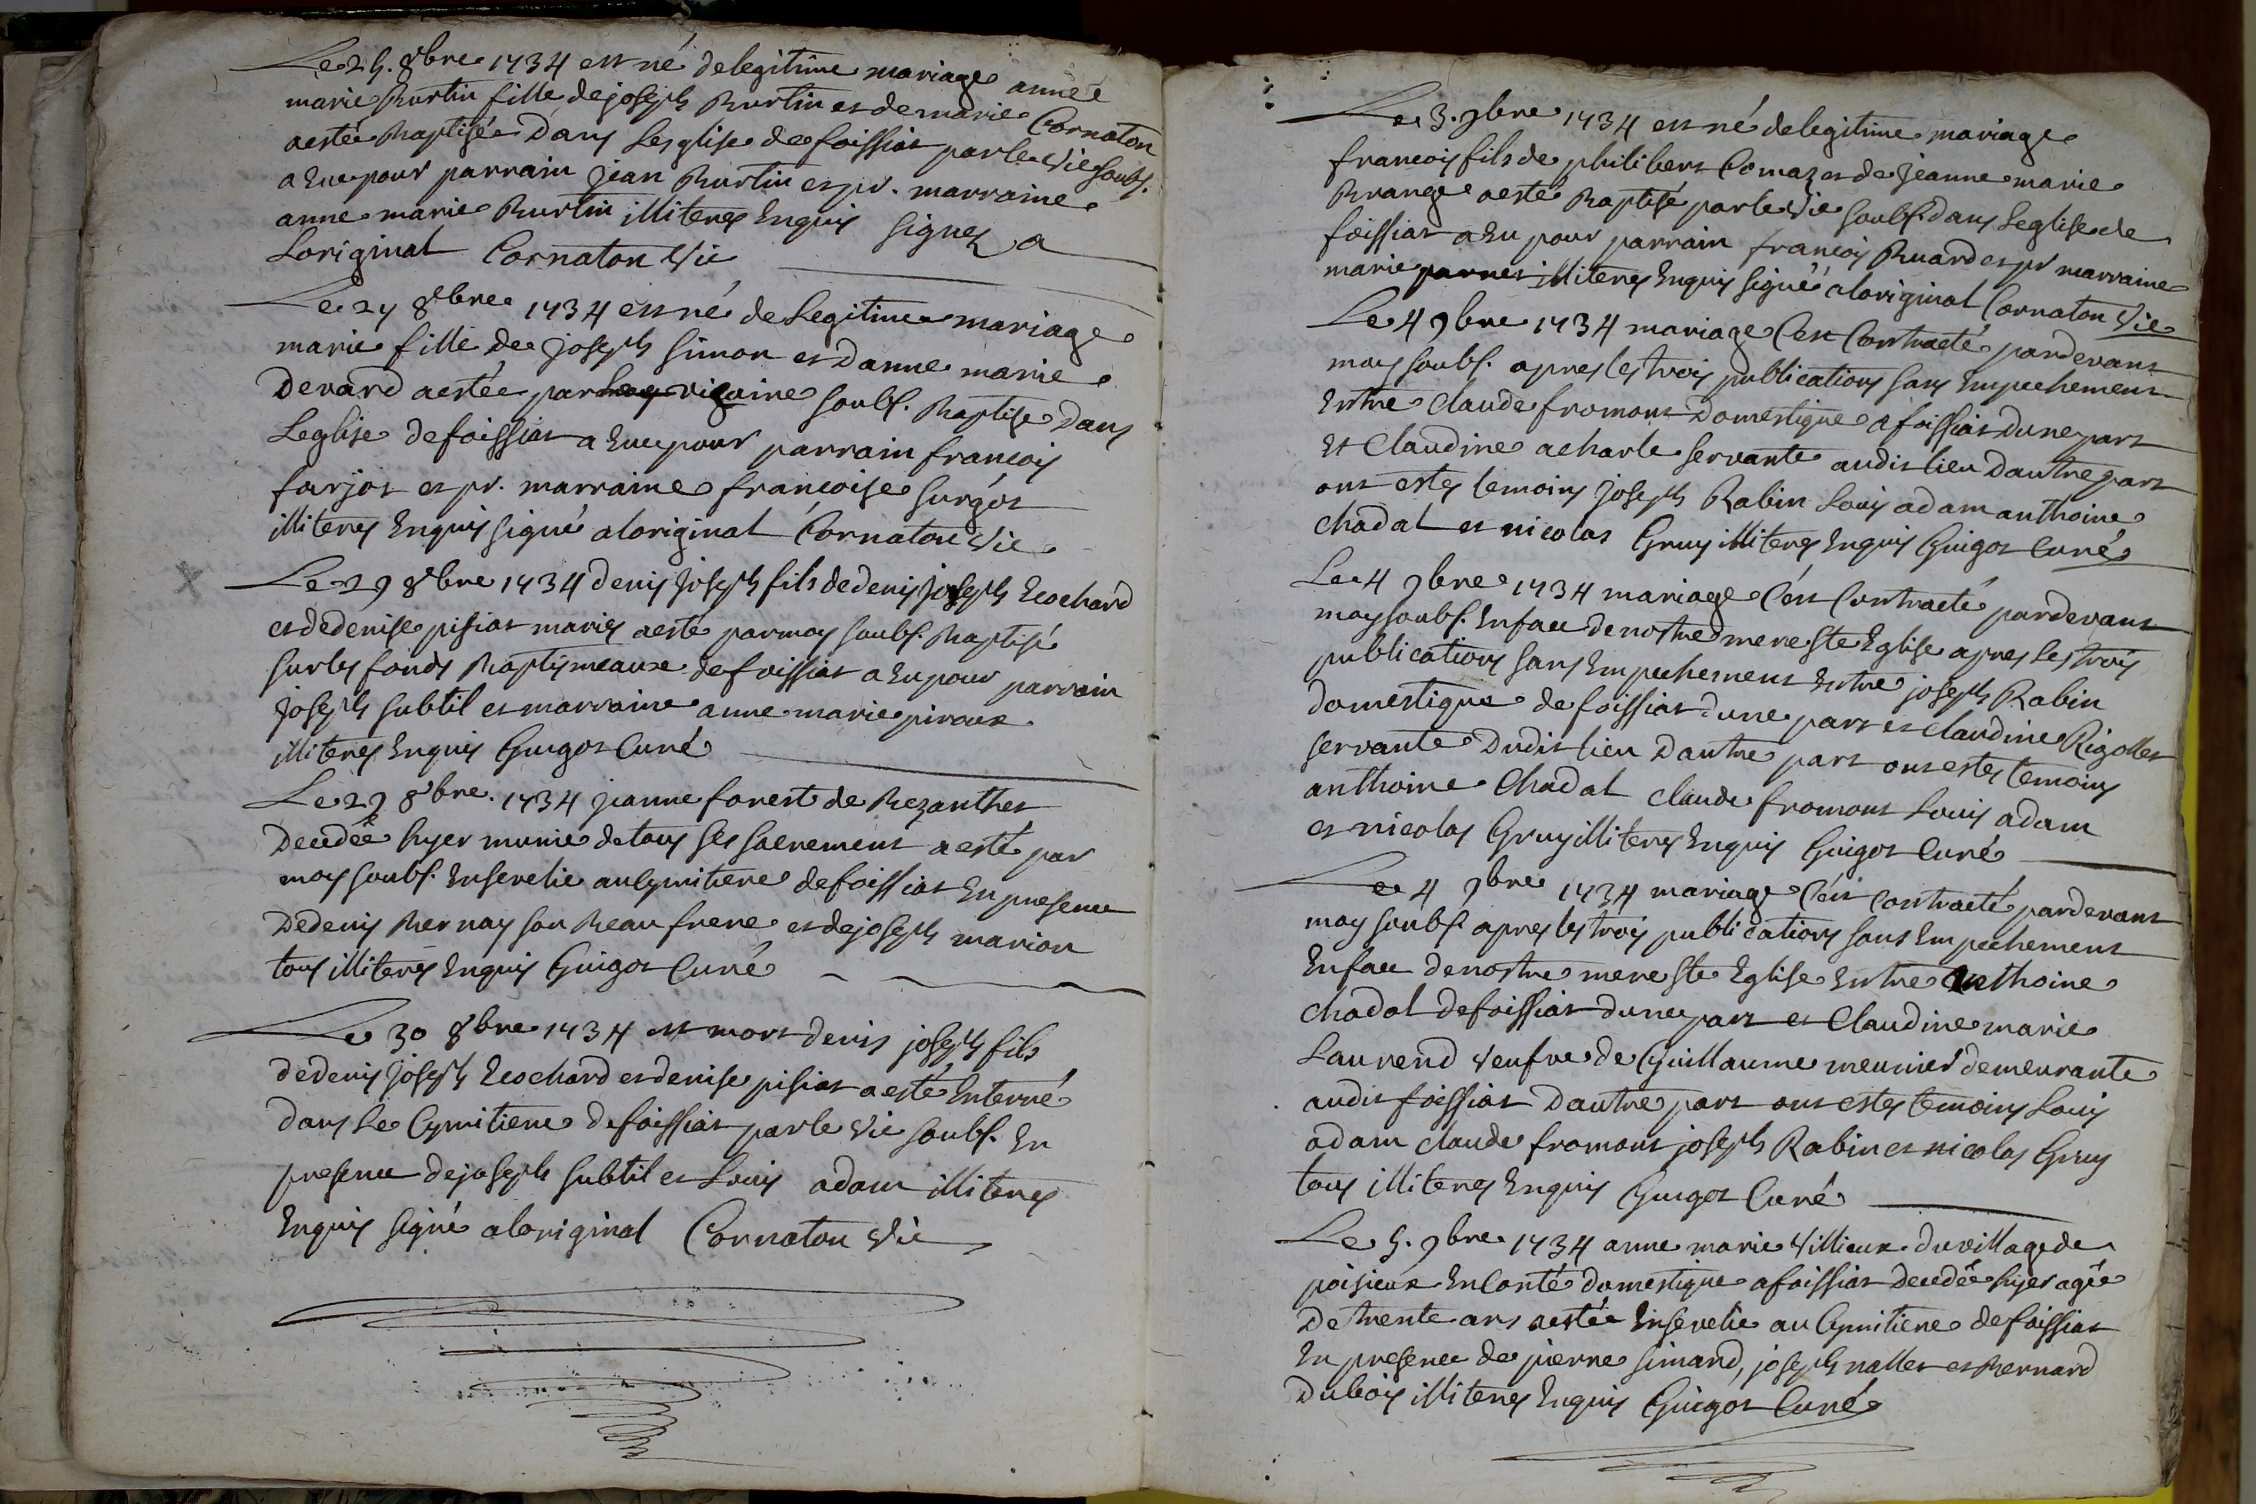 Le 25. 8bre 1734 est né de legitime mariage année
marie Burtin fille de joseph Burtin et de marie Cornaton
aestée Baptisée Dans Lesglise de foissiat par le vic soubs.
a Eue pour parrain jean Burtin et pr. marraine
anne marie Burtin illiteres Enquis signez a
Loriginal Cornaton vic
Le 27 8bre 1734 est né de Legitime mariage
marie fille de joseph simon et Danne marie
Devard aestée par vicaire soubs. Baptise Dans
Leglise de foissiat a Eue pour parrain francois
farjot et pr. marraine francoise surgot
illiteres Enquis signé aloriginal Cornaton vic
Le 29 8bre 1734 denis joseph fils de denis joseph Ecochard
et de denise pisiat mariés aesté par moy soubs. Baptisé
sur les fonds Baptismeaux de foissiat a Eu pour parrain
joseph subtil et marraine anne marie piroux
illiteres Enquis Guigot Curé
Le 29 8bre. 1734 jeanne forest de Bezanthet
Decedée hyer munie de tous ses sacrement aesté par
moy soubs. Ensevelie au Cymitiere de foissiat En presence
De denis Bernay son Beau frere et de joseph marion
tous illiteres Enquis Guigot Curé
Le 30 8bre 1734 est mort denis joseph fils
de denis joseph Ecochard et denise pisiat aesté Enterré
dans Le Cymitiere de foissiat par le vic soubs. En
presence de joseph subtil et Louis adam illiteres
Enquis signé aloriginal Cornaton vic
Le 3. 9bre 1734 est né de legitime mariage
francois fils de philibert Comaz et de jeanne marie
Brange aesté Baptisé par le vic soubs. dans Leglise de
foissiat a Eu pour parrain francois Buard et pr marraine
marie pannet illiteres Enquis signé aloriginal Cornaton vic
Le 4 9bre 1734 mariage C'est Contracté pardevant
moy soubs. apres les trois publications sans Empechement
Entre Claude fromont Domestique a foissiat Dune part
Et Claudine acharle servante audit lieu Dautre part
ont estes temoins joseph Rabin Louis adam anthoine
Chadal et nicolas Gruy illiteres Enquis Guigot Curé
Le 4 9bre 1734 mariage C'est Contracté pardevant
moy soubs. En face de nostre mere Ste Eglise apres les trois
publications sans Empechement Entre joseph Rabin
domestique de foissiat dune part et Claudine Rigollet
servante Dudit lieu Dautre part ont estes temoins
anthoine Chadal claude fromont Louis adam
et nicolas Gruy illiteres Enquis Guigot Curé
Le 4 9bre 1734 mariage C'est Contracté pardevant
moy soubs. apres les trois publications sans Empechement
En face de nostre mere Ste Eglise Entre Anthoine
Chadal de foissiat dune part et Claudine marie
Laurend veufve de Guillaume meunier demeurante
audit foissiat Dautre part ont estes temoins Louis
adam claude fromont joseph Rabin et nicolas Gruy
tous illiteres Enquis Guigot Curé
Le 5. 9bre 1734 anne marie Villieux. du village de
poisieux En Conté domestique a foissiat Decedée hyer agée
De trente ans aestée Ensevelie au Cymitiere de foissiat
En presence de pierre simard, joseph nallet et Bernard
Dubois illiteres Enquis Guigot Curé